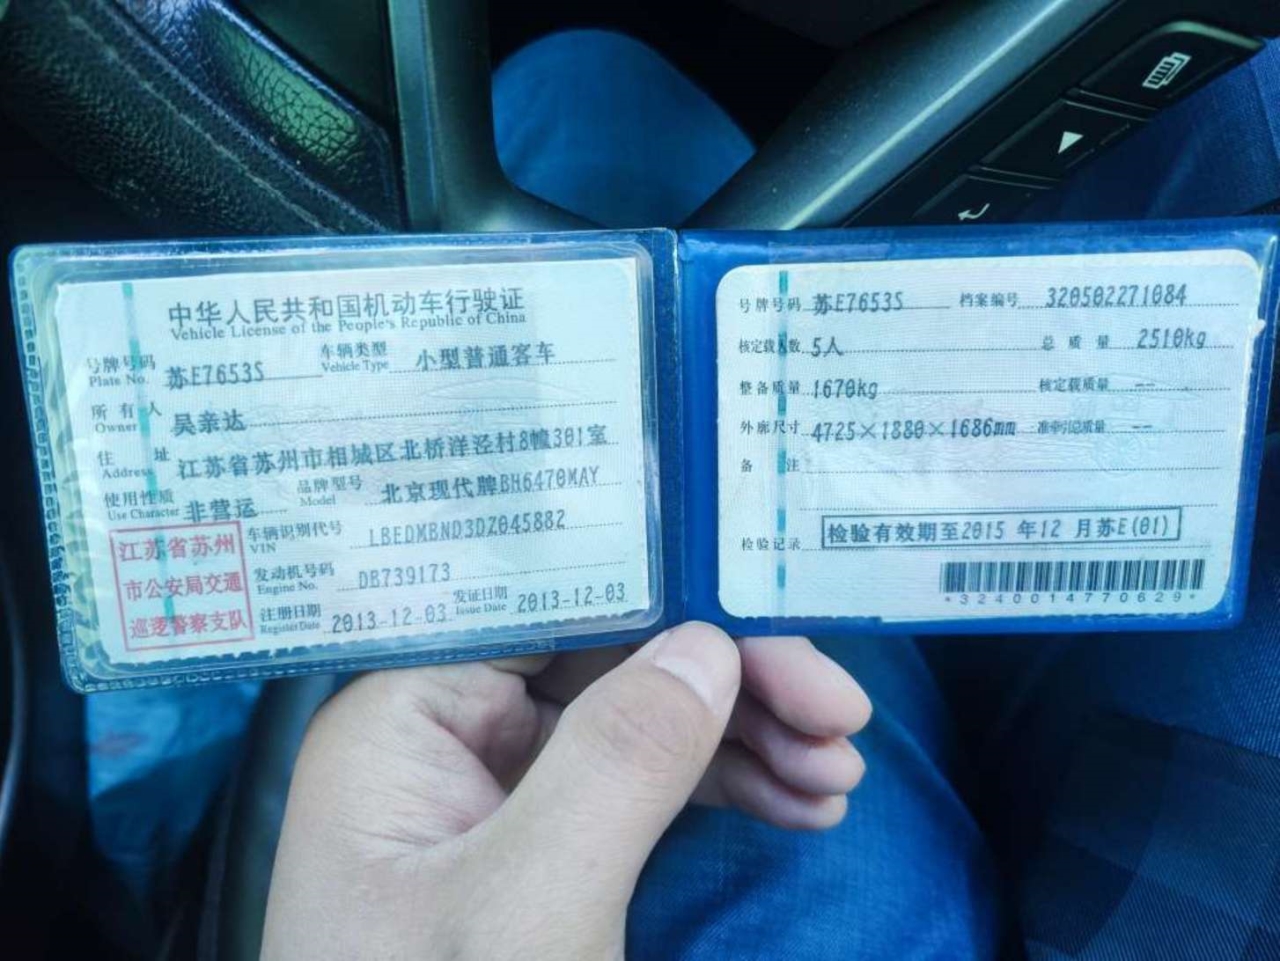 中华人民共和国机动车行驶证
Vehicle License of the People's Republic of China
号牌号码 苏E7653S 车辆类型 小型普通客车
Plate No. Vehicle Type
所有人 吴亲达
Owner
住址 江苏省苏州市相城区北桥洋泾村8幢301室
Address
使用性质 非营运 品牌型号 北京现代牌BH6470MAY
Use Character Model
车辆识别代号 LBEDMBND3DZ045882
VIN
发动机号码 DB739173
Engine No.
注册日期 2013-12-03 发证日期 2013-12-03
Register Date Issue Date
江苏省苏州
市公安局交通
巡逻警察支队
号牌号码 苏E7653S 档案编号 320502271084
核定载人数 5人 总质量 2510kg
整备质量 1670kg 核定载质量 --
外廓尺寸 4725×1880×1686mm 准牵引总质量 --
备注
检验记录 检验有效期至2015年12月苏E(01)
*3240014770629*